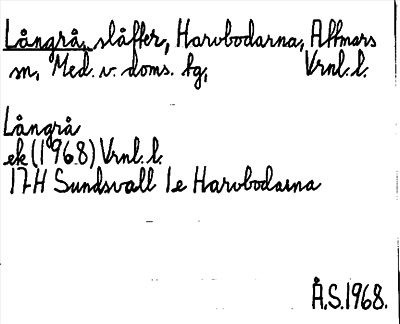 Långrå, slåtter, Harvbodarna, Attmars
sn, Med. v. doms. tg, Vrnl. l.
Långrå
ek (1968) Vrnl. l.
17H Sundsvall 1e Harvbodarna
Å.S. 1968.